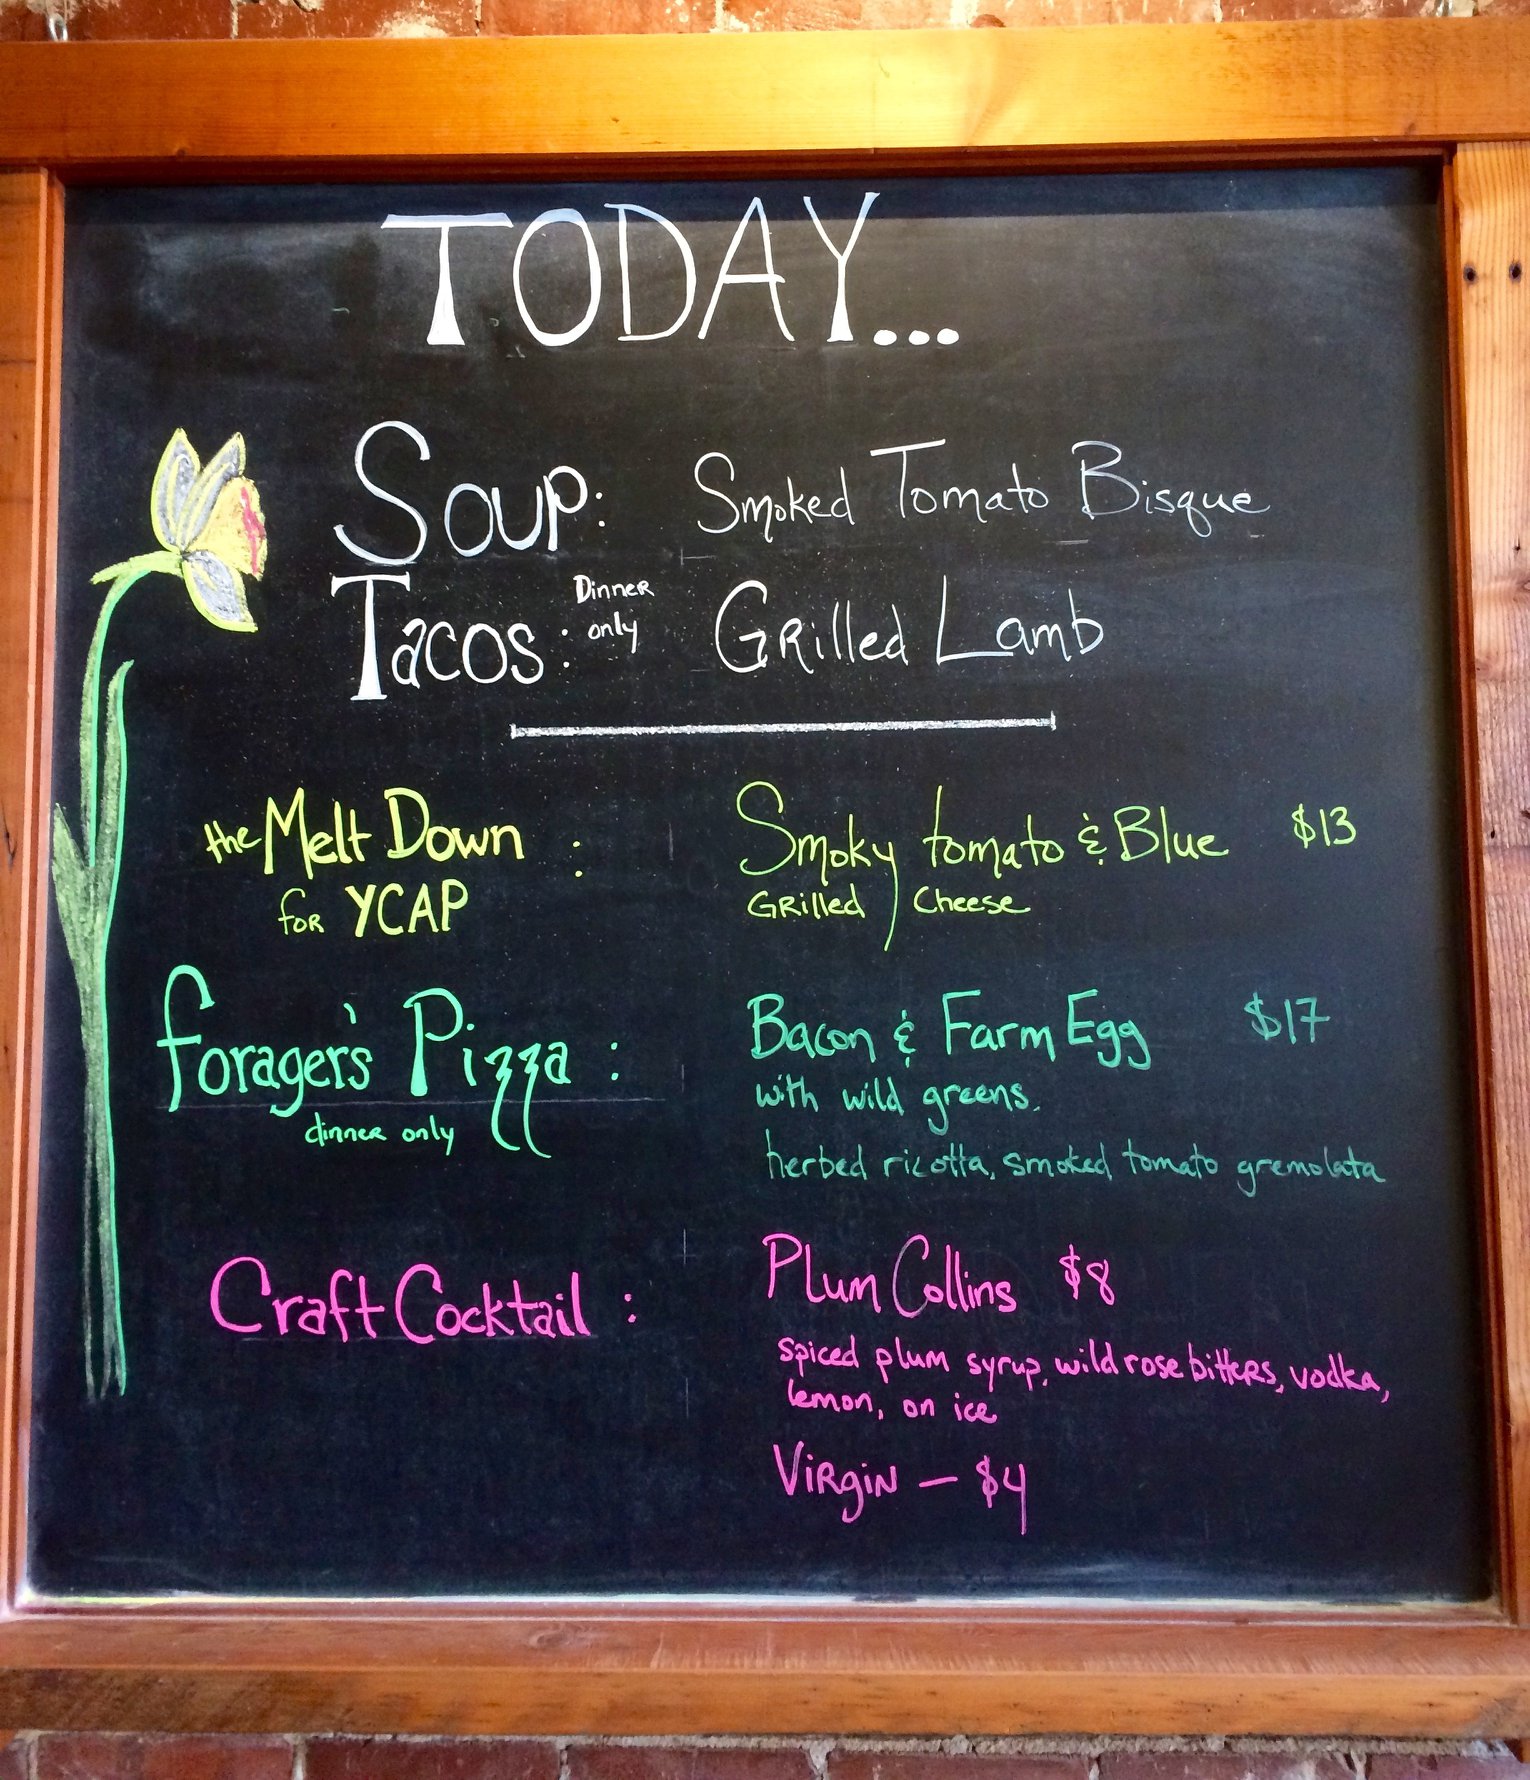 TODAY...
Soup: Smoked Tomato Bisque
Tacos: Dinner only Grilled Lamb
the Melt Down : Smoky tomato & Blue $13
for YCAP Grilled Cheese
Forager's Pizza : Bacon & Farm Egg $17
dinner only with wild greens,
herbed ricotta, smoked tomato gremolata
Craft Cocktail : Plum Collins $8
spiced plum syrup, wild rose bitters, vodka,
lemon, on ice
Virgin – $4